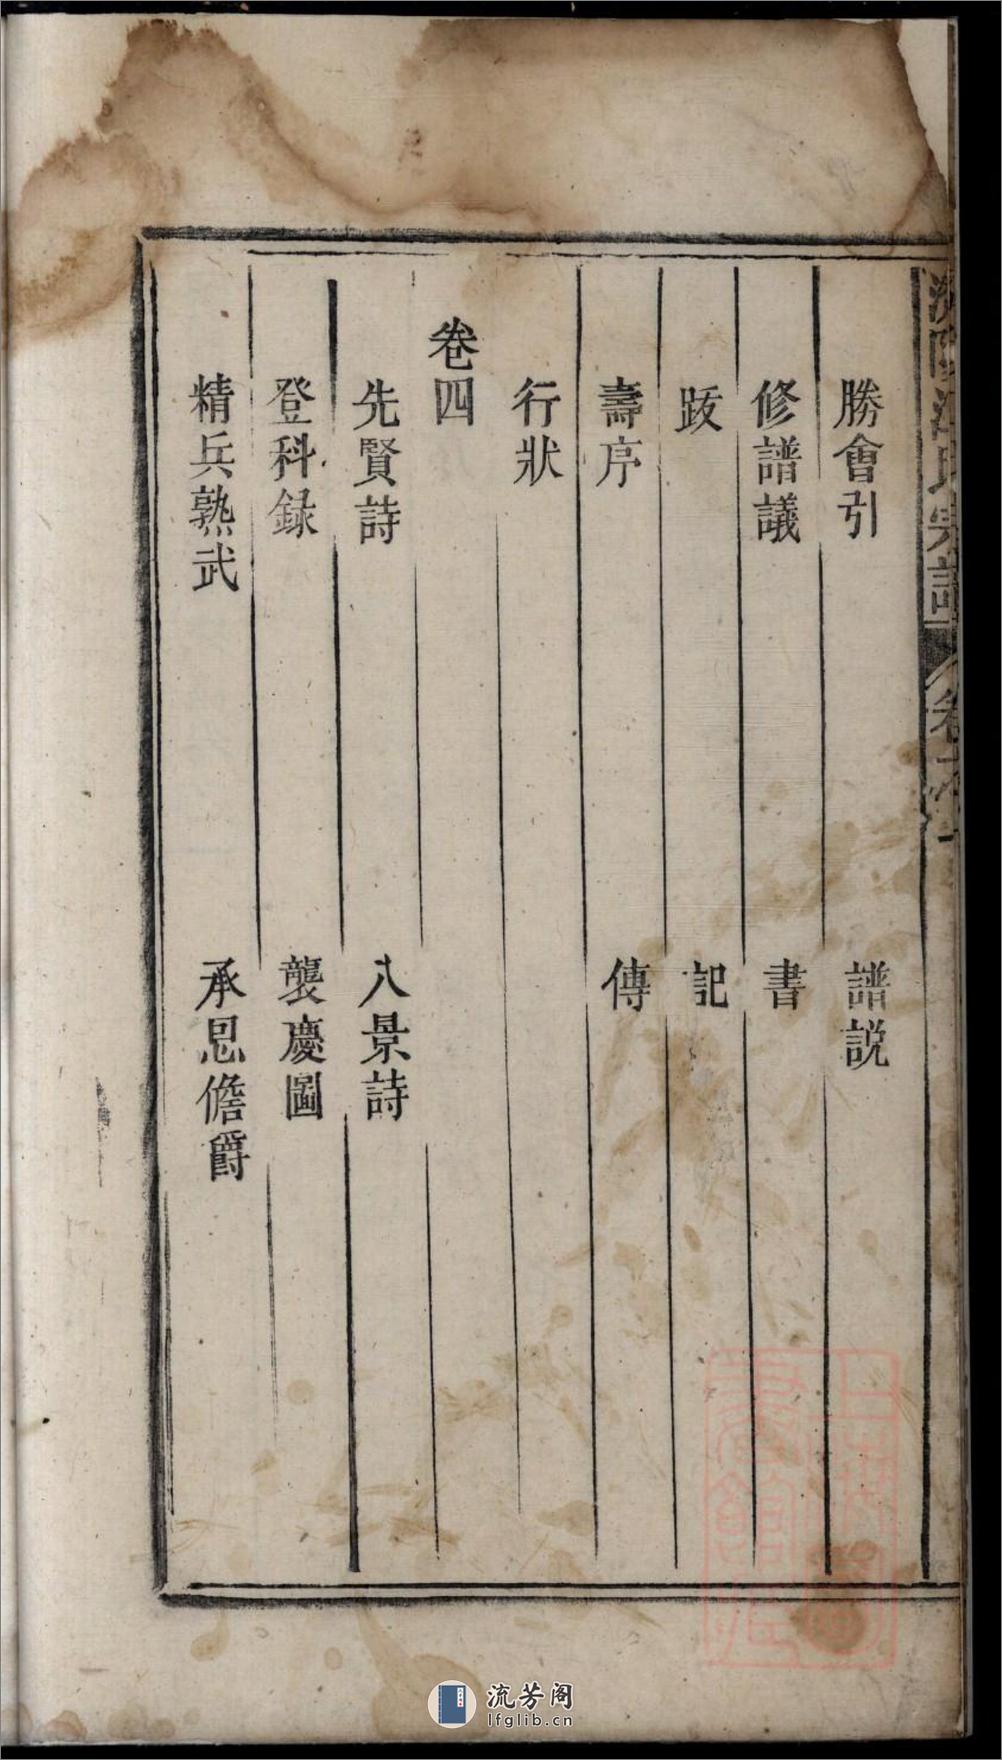 江氏宗譜
勝會引　譜説
修譜議　書
跋　記
壽序　傳
行狀
卷四
先賢詩　八景詩
登科録　襲慶圖
精兵熟武　承恩儋爵
流芳阁
lfglib.cn